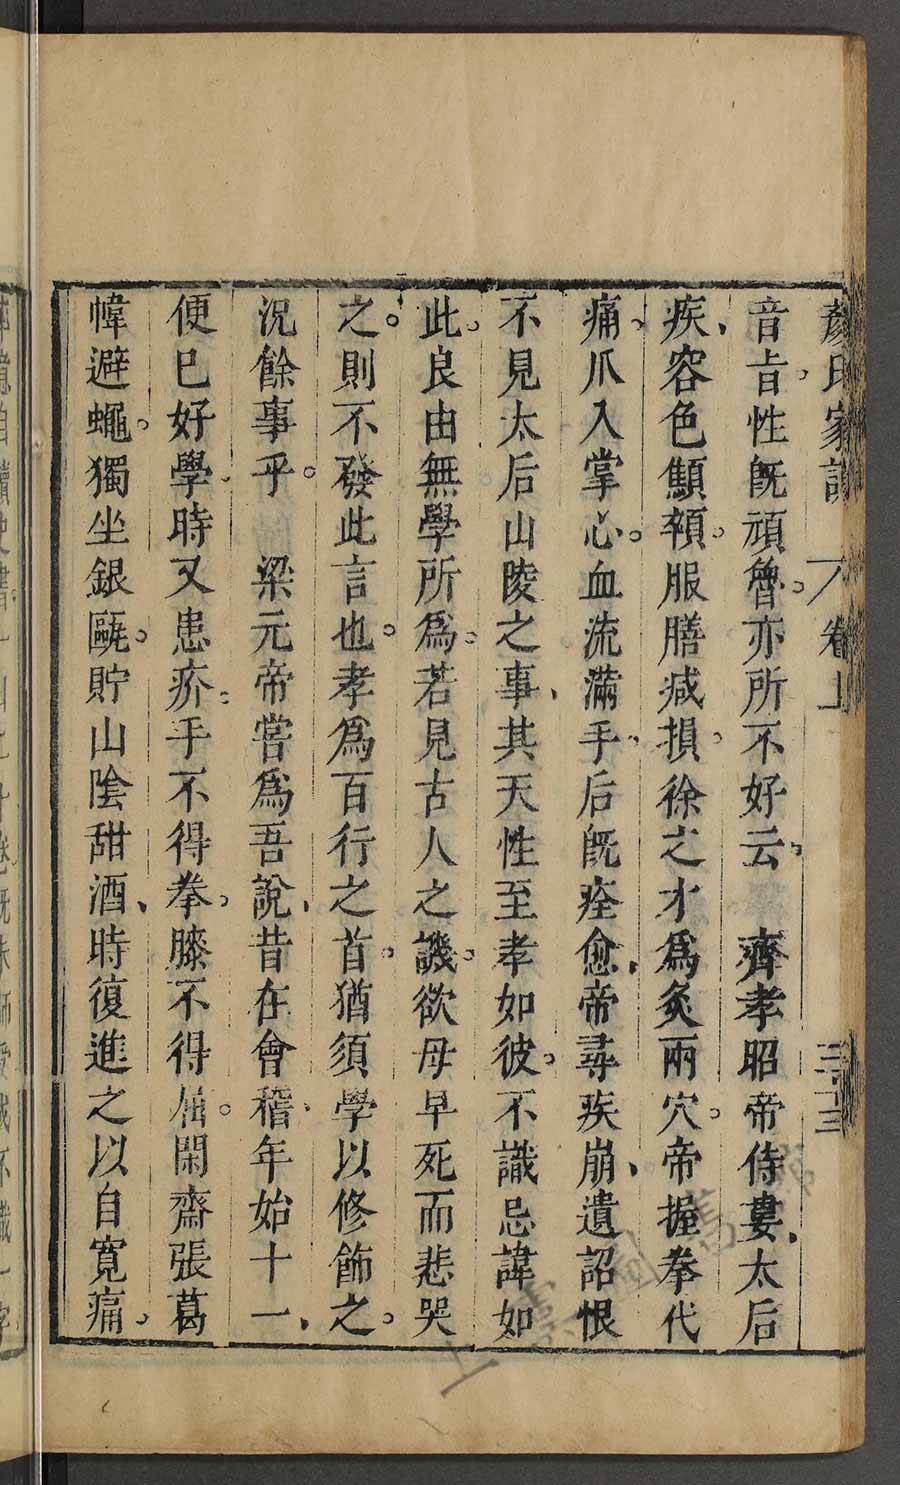 顏氏家訓 卷上 三十三
音旨、性既頑魯。亦所不好云、 齊孝昭帝侍婁、太后
疾、容色顦顇。服膳減損。徐之才爲灸兩穴。帝握拳代
痛。爪入掌心。血流滿手、后既痊愈、帝尋疾崩、遺詔恨
不見太后山陵之事、其天性至孝如彼。不識忌諱如
此。良由無學所爲。若見古人之譏。欲母早死而悲哭
之。則不發此言也。孝爲百行之首。猶須學以修飾之。
況餘事乎。 梁元帝嘗爲吾說、昔在會稽、年始十一、
便已好學。時又患疥。手不得拳。膝不得屈。閑齋張葛
幃避蠅。獨坐銀甌。貯山陰甜酒、時復進之以自寬痛。